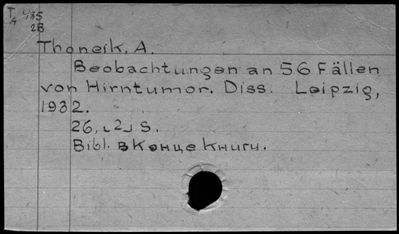 Thoneik, A.
Beobachtungen an 56 Fällen
von Hirntumor. Diss. Leipzig,
1932.
26, [2] S.
Bibl. в конце книги.